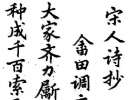 宋人诗抄
畲田调
大家齐力劚
种成千百索